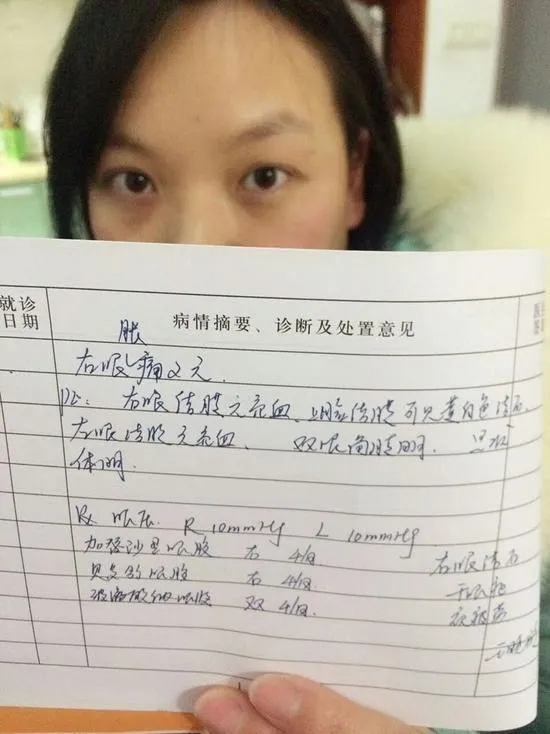 就诊日期
病情摘要、诊断及处置意见
胀
右眼痛2天.
PE: 右眼结膜无充血、上睑结膜可见黄白色结石,
左眼结膜无充血. 双眼角膜明.
体明.
Rx 眼压 R 10mmHg L 10mmHg
加替沙星眼胶 右 4/日
贝复舒眼胶 右 4/日
玻璃酸钠眼胶 双 4/日.
右眼结石
干眼